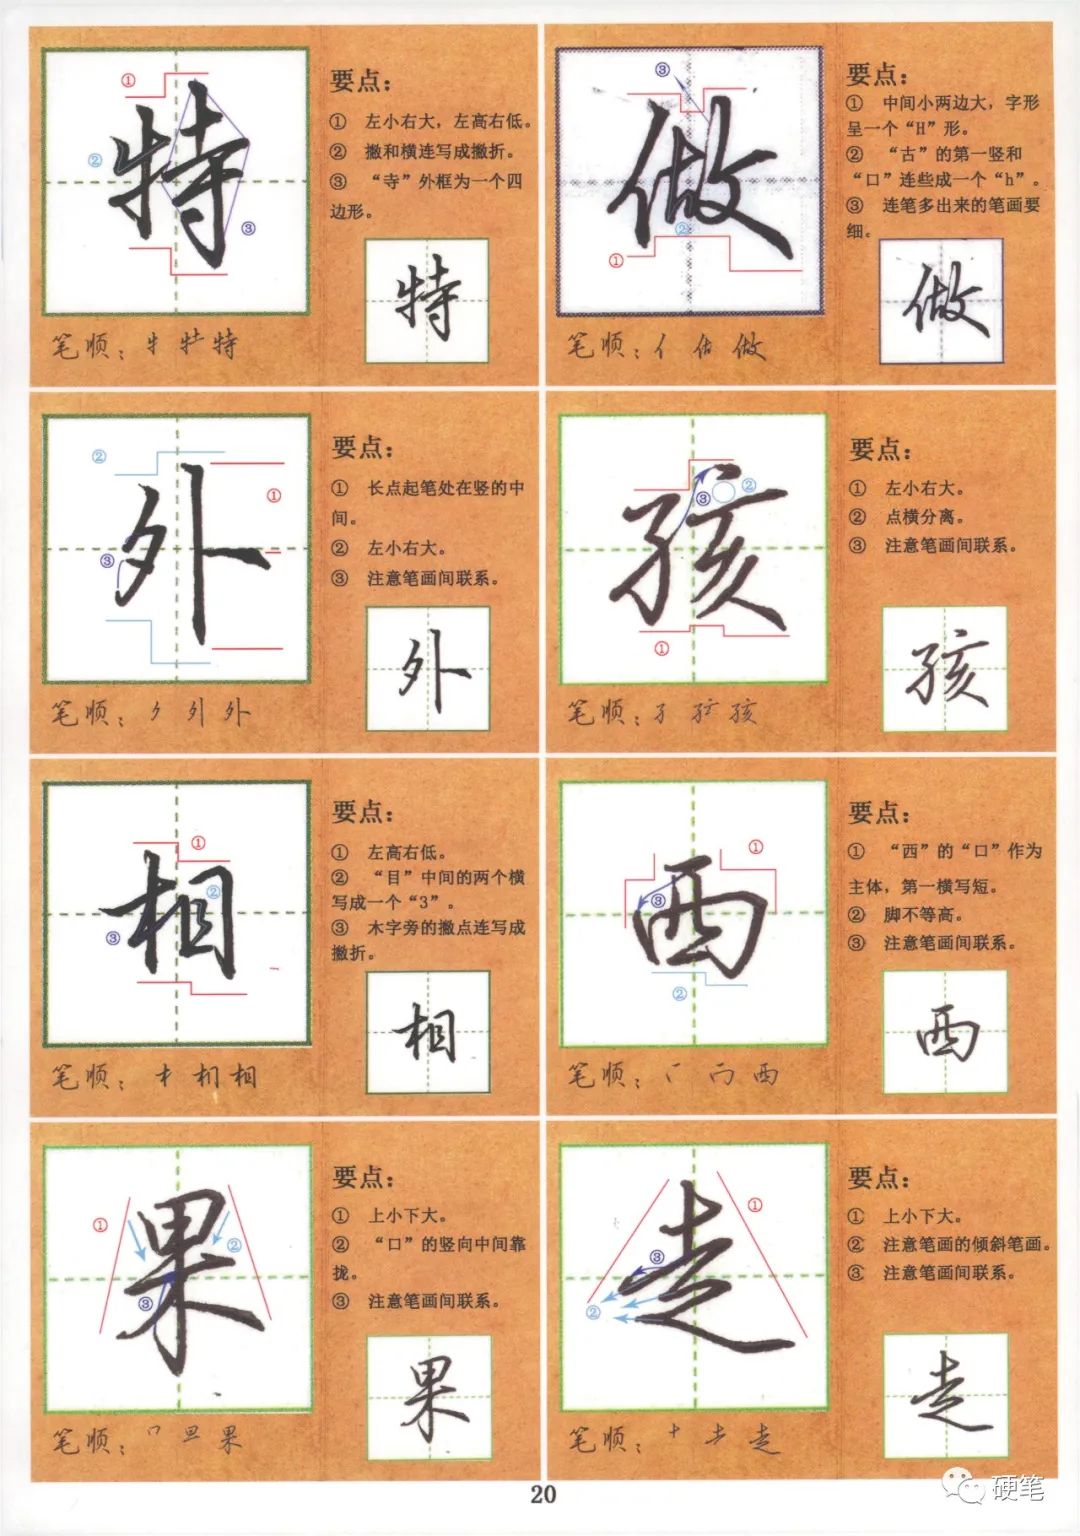 特
①
②
③
要点：
① 左小右大，左高右低。
② 撇和横连写成撇折。
③ “寺”外框为一个四
边形。
特
笔顺：牜 牪 特
做
③
②
①
要点：
① 中间小两边大，字形
呈一个“H”形。
② “古”的第一竖和
“口”连些成一个“h”。
③ 连笔多出来的笔画要
细。
做
笔顺：亻 估 做
外
②
①
③
要点：
① 长点起笔处在竖的中
间。
② 左小右大。
③ 注意笔画间联系。
外
笔顺：夕 外 外
孩
③
②
①
要点：
① 左小右大。
② 点横分离。
③ 注意笔画间联系。
孩
笔顺：孑 孩
相
①
②
③
要点：
① 左高右低。
② “目”中间的两个横
写成一个“3”。
③ 木字旁的撇点连写成
撇折。
相
笔顺：相 相
西
①
③
②
要点：
① “西”的“口”作为
主体，第一横写短。
② 脚不等高。
③ 注意笔画间联系。
西
笔顺：西
果
①
②
③
要点：
① 上小下大。
② “口”的竖向中间靠
拢。
③ 注意笔画间联系。
果
笔顺：果
走
①
③
②
要点：
① 上小下大。
② 注意笔画的倾斜笔画。
③ 注意笔画间联系。
走
笔顺：走
20
硬笔